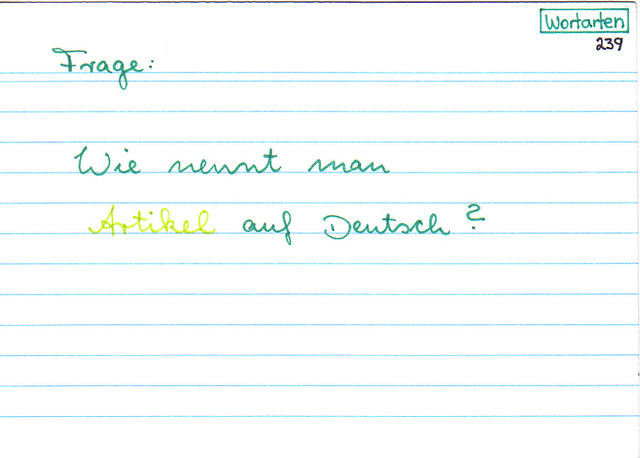 Wortarten
239
Frage:
Wie nennt man
Artikel auf Deutsch?